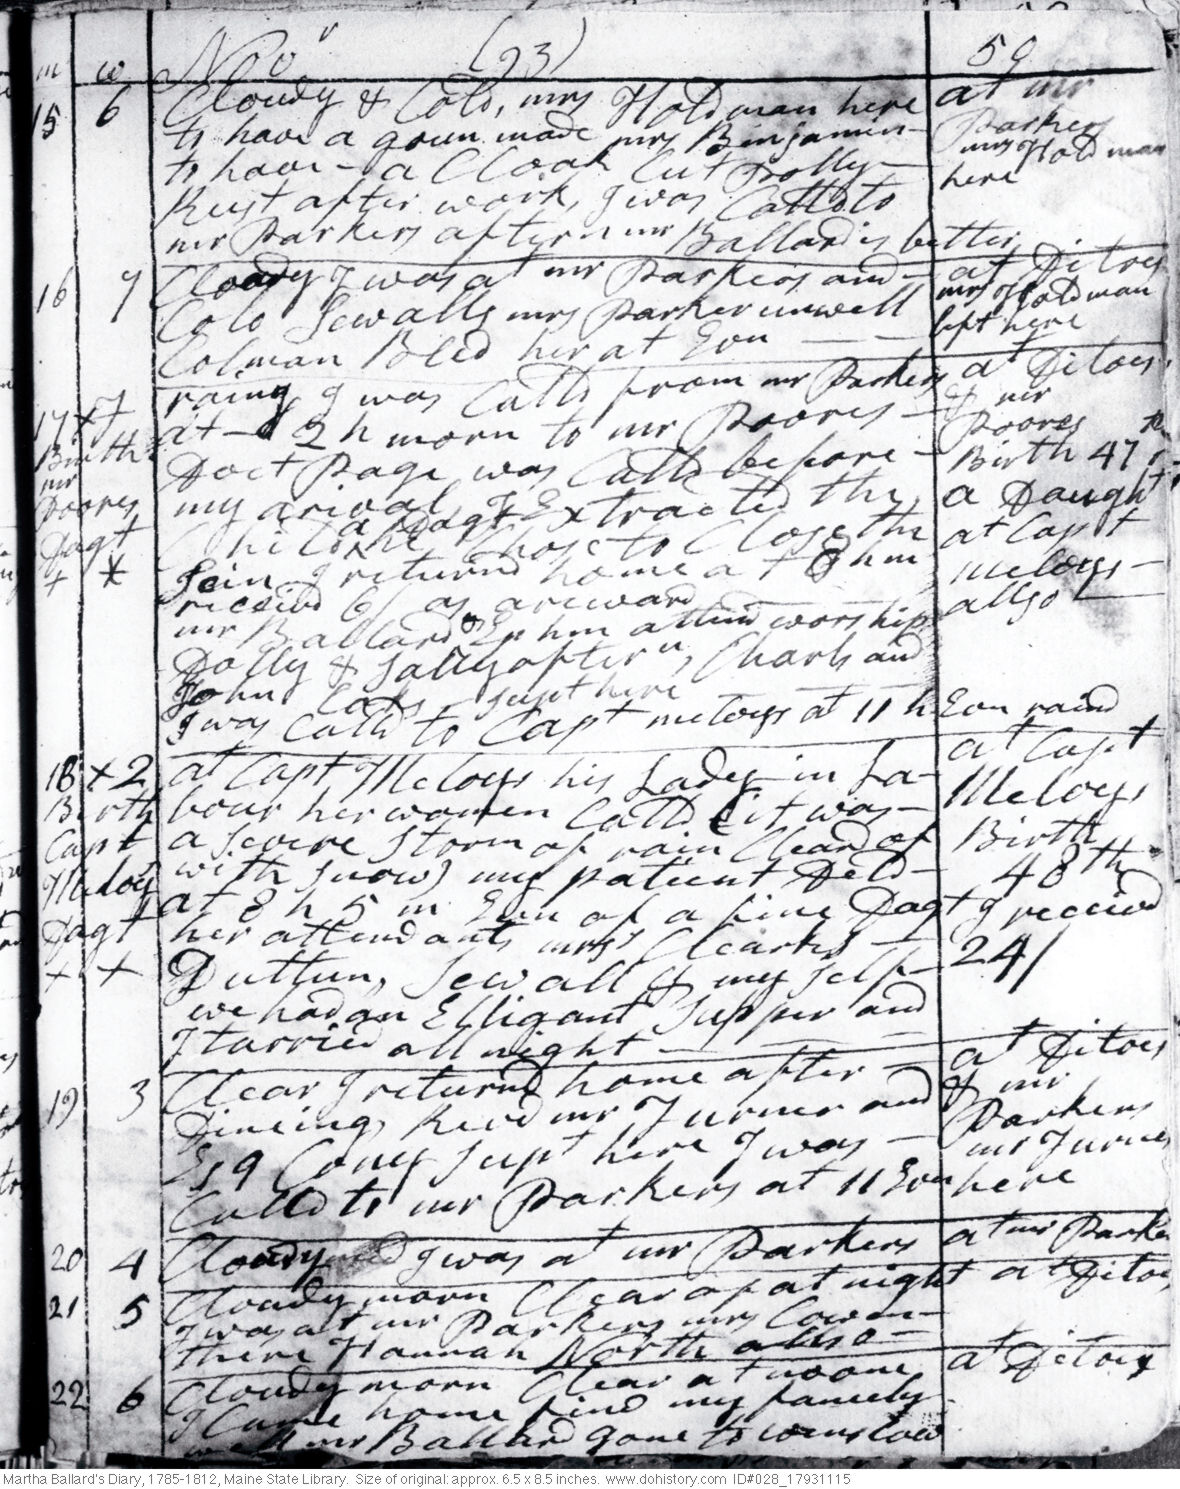 m w Novr (93) 59
15 6 Cloudy & Cold, mrs Holdman here at mr
to have a goun made mrs Benjamin Parkers
to have - a Cloak Cut Polly mrs Holdman
Rust after work, I was Calld to here
mr Parkers aftern mr Ballard is better
16 7 Cloudy I was at mr Parkers and at Ditoes
Colo Sewalls mrs Parker unwell mrs Holdman
Colman Bled her at Evn left here
17 x 7 rainy I was Calld from mr Parkers at Ditoes
at 2 h morn to mr Poores & mr
Birth Doct Page was Calld before Poores
mr my arival I Extracted the Birth 47th
Poores Child a Dagt a Daught
Dagt he Chose to Close the at Capt
+ * Loin I returnd home at 8 hm Meloys
receivd 6/ as a reward allso
mr Ballard & Ephm attend worship
Dolly & Sally aftern, Charls and
John Coks supt here
I was Calld to Capt meloys at 11 h Evn raind
18 x 2 at Capt Meloys his Lady in La- at Capt
Birth bour her women Calld it was Meloys
Capt a severe storm of rain Cleard of Birth
Meloy with snow) my patient Deld 48th
Dagt at 8 h 5 m Evn of a fine Dagt I receivd
+ + her attendants mrss Clearks 24/
Duttun, Sewall & my self
we had an Elligant Supper and
I tarried all night
19 3 Clear I returnd home after at Ditoes
Dineing, mr Turner and & mr
Esq Cony supt here I was Parkers
Calld to mr Parkers at 11 Evn mr Turner
here
20 4 Cloudy I was at mr Parkers at mr Parker
21 5 Cloudy morn Clear of at night at Ditoes
I was at mr Parkers mrs Cowen
there Hannah North allso
22 6 Cloudy morn Clear at noone at Ditoes
I Came home find my famely
well mr Ballard gone to winslow
Martha Ballard's Diary, 1785-1812, Maine State Library. Size of original: approx. 6.5 x 8.5 inches. www.dohistory.com ID#028_17931115